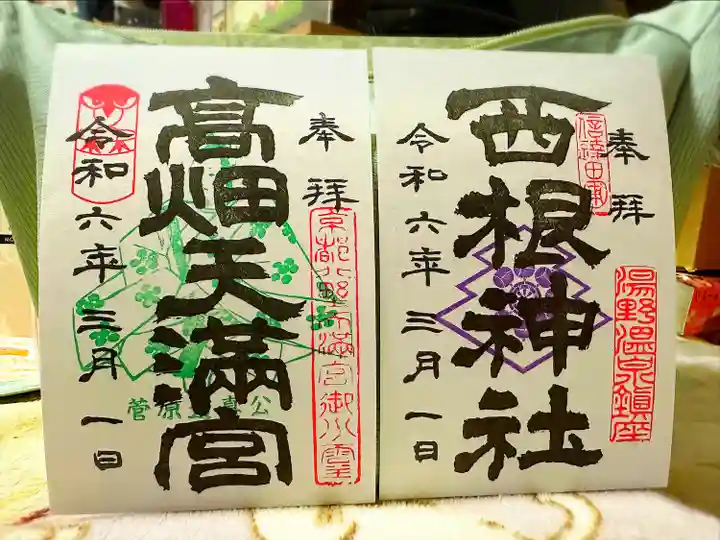 奉拝
信達田東
西根神社
湯野温泉鎮座
令和六年三月一日
奉拝
京都北野天満宮御分霊
高畑天満宮
菅原道真公
令和六年三月一日